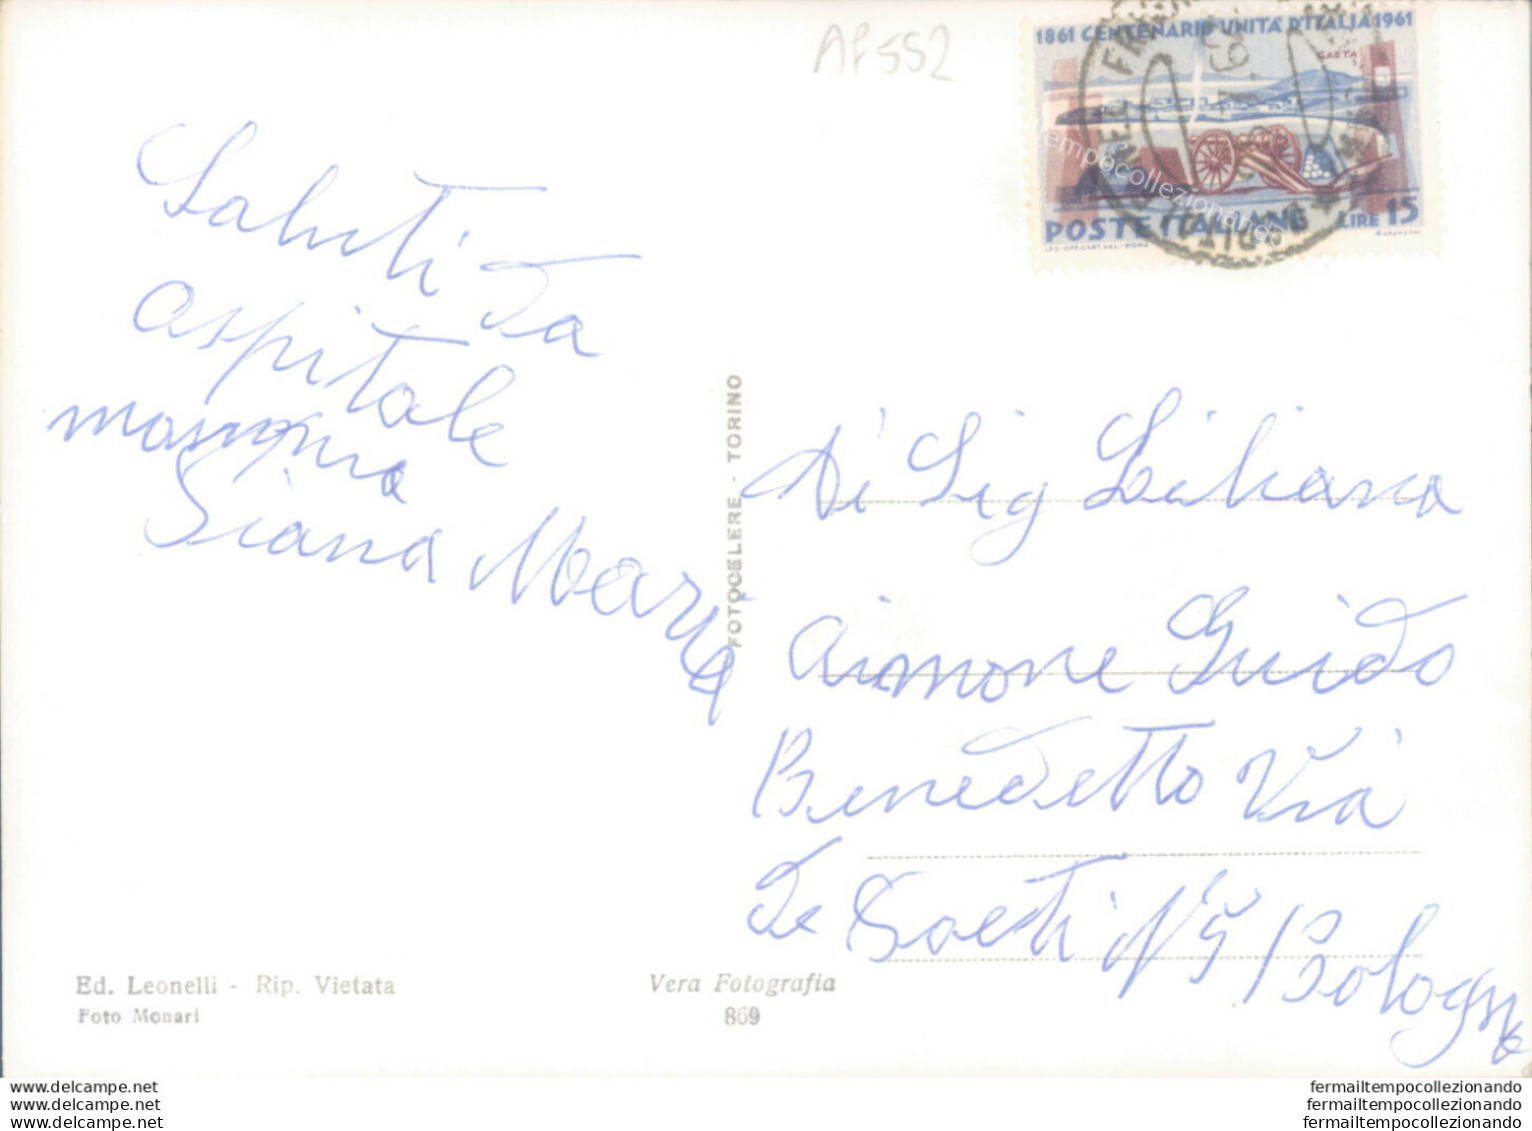 AP552
1861 CENTENARIO UNITÀ D'ITALIA 1961
GAETA
POSTE ITALIANE LIRE 15
I.P.S.-OFF.CART.VAL.-ROMA
tempocollezionando
Saluti da
ospitale
Siana Maria
FOTOCELERE - TORINO
Di Sig Liliana
Aimone Guido
Benedetto Via
De Poeti N 5 Bologna
Ed. Leonelli - Rip. Vietata
Foto Monari
Vera Fotografia
869
www.delcampe.net
www.delcampe.net
www.delcampe.net
fermailtempocollezionando
fermailtempocollezionando
fermailtempocollezionando